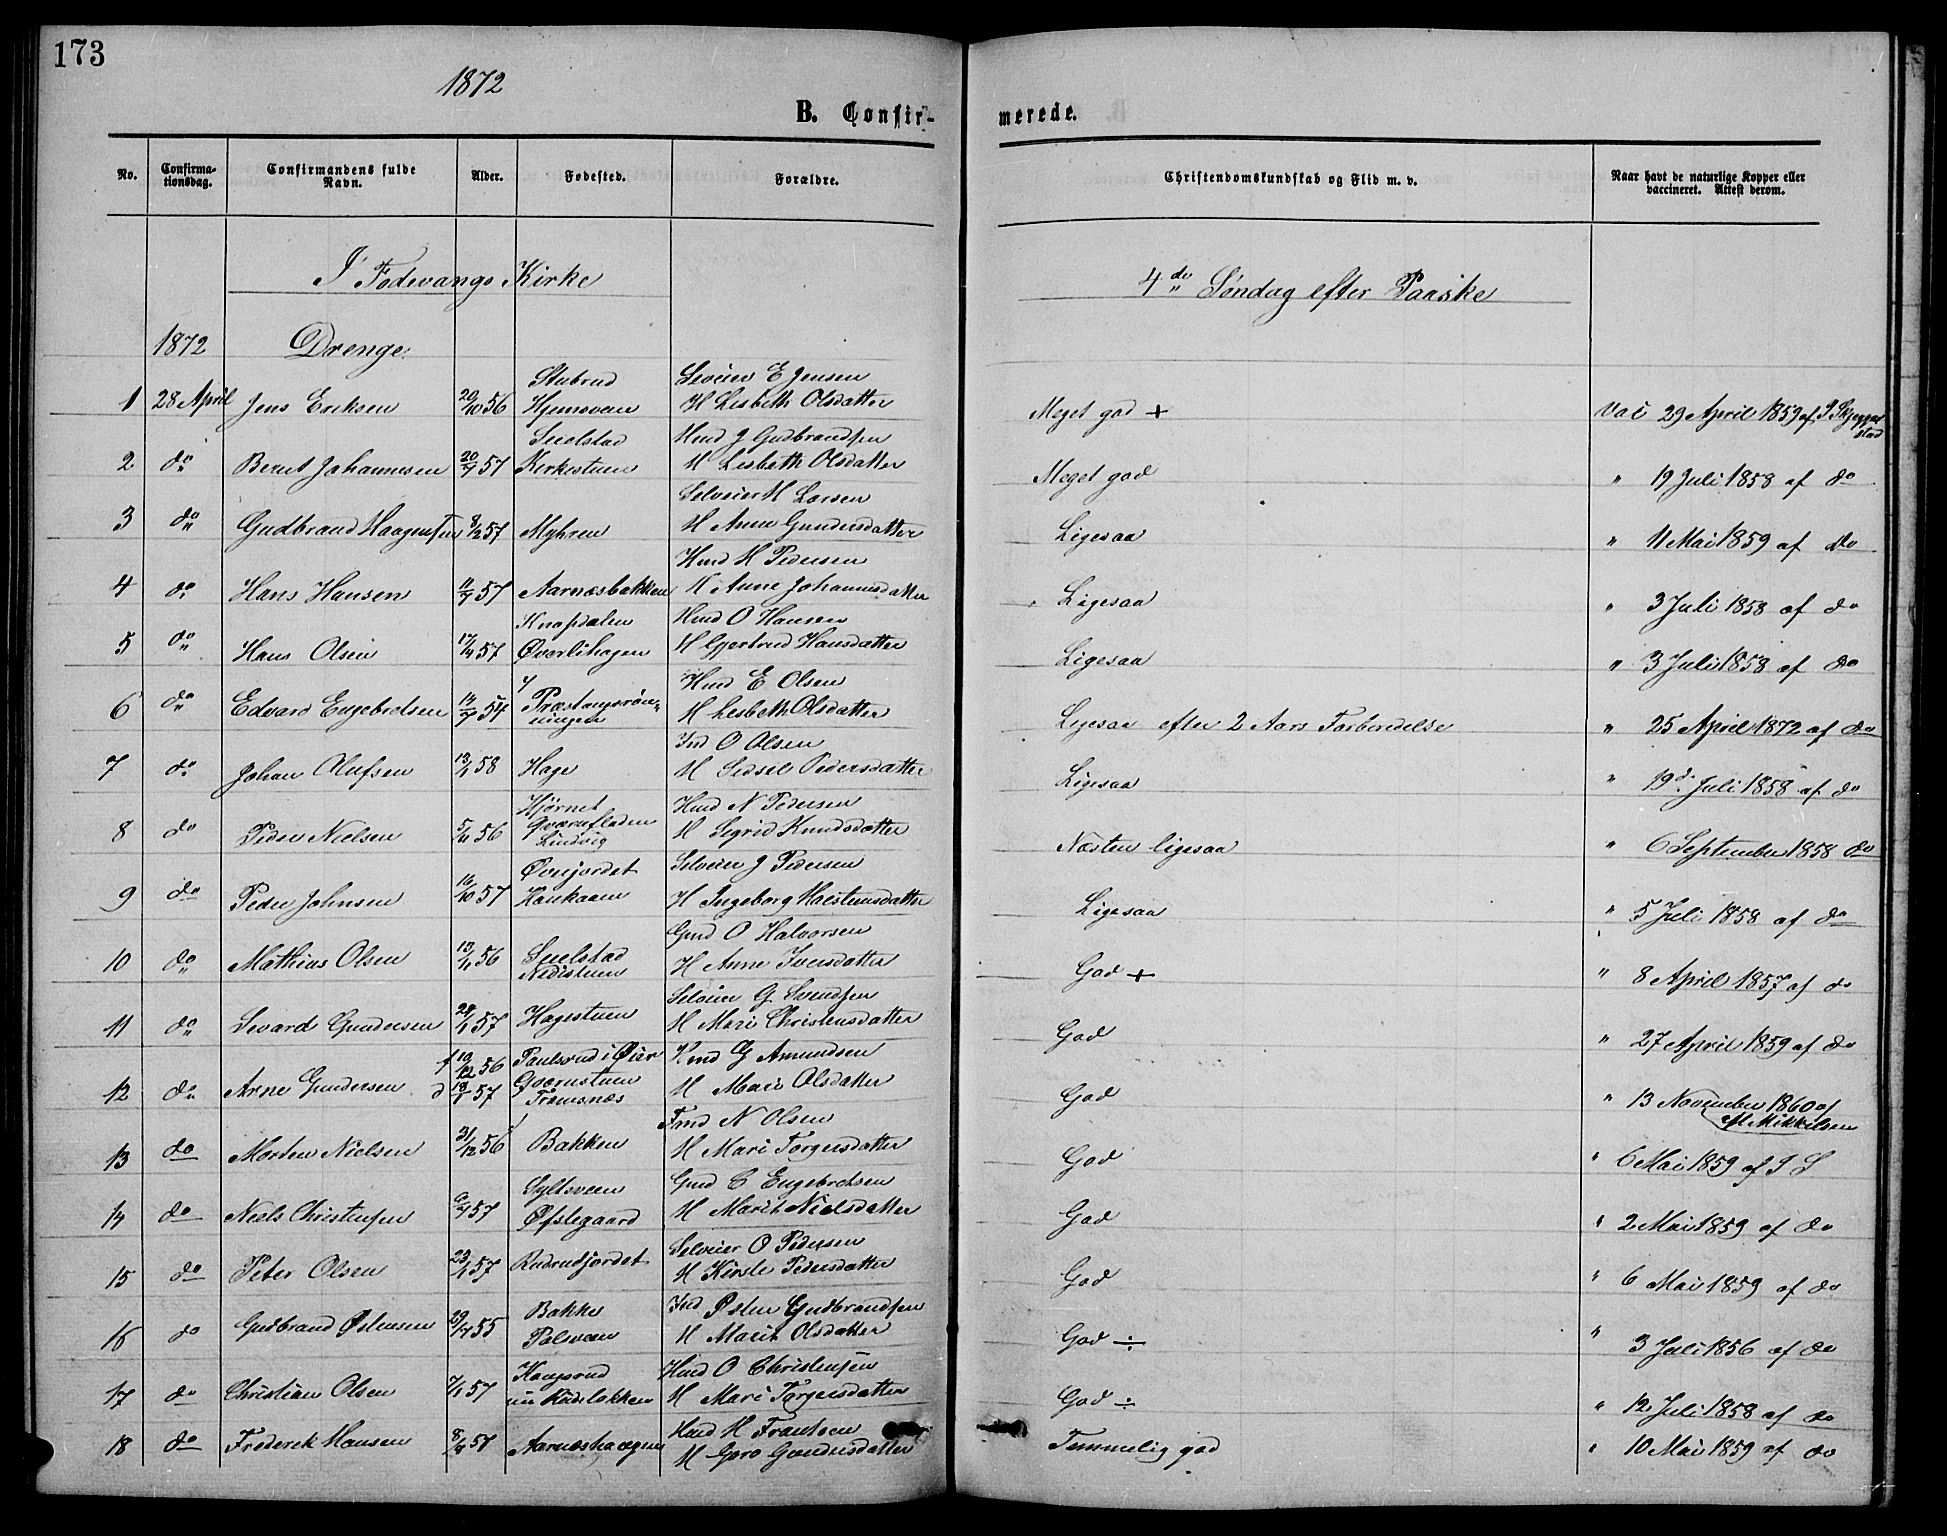 173
1872
B. Confir-
merede.
No.
Confirma-
tionsdag.
Confirmandens fulde
Navn.
Alder.
Fødested.
Forældre.
Christendomskundskab og Flid m. v.
Naar havt de naturlige Kopper eller
vaccineret. Attest derom.
I Fodvangs Kirke
4de Søndag efter Paaske
1872 Drenge
Stubrud Selveier E Jensen
1 28 April Jens Eriksen 20/10 56 Hjemsveen H Lisbeth Olsdatter Meget god + Vac 29 April 1859 af
Snelstad Hmd J Gudbrandsen
2 do Bernt Johannesen 20/7 57 Kirkestuen H Lisbeth Olsdatter Meget god " 19 Juli 1858 af do
Selveier H Larsen
3 do Gudbrand Haagensen 8/12 57 Myhren H Anne Gundersdatter Ligesaa " 11 Mai 1859 af do
Hmd H Pedersen
4 do Hans Hansen 11/7 57 Aarnæsbakken H Anne Johannesdatter Ligesaa " 3 Juli 1858 af do
Hmd O Hansen
5 do Hans Olsen 17/4 57 Øverlihagen H Gjertrud Hansdatter Ligesaa " 3 Juli 1858 af do
Hmd E Olsen
6 do Edvard Engebretsen 14/7 54 H Lisbeth Olsdatter Ligesaa efter 2 Aars Forberedelse " 25 April 1872 af do
Ind O Olsen
7 do Johan Olufsen 13/1 58 Hage H Sidsel Pedersdatter Ligesaa " 19d Juli 1858 af do
Hjørnet Hmd N Pedersen
8 do Peder Nielsen 56 Qværnfladen H Sigrid Knudsdatter Næsten ligesaa " 6 September 1858 do
Lindvig
Øvrejordet Selveier J Pedersen
9 do Peder Johnsen 16/10 57 H Ingeborg Halstensdatter Ligesaa " 5 Juli 1858 af do
Gmd O Halvorsen
10 do Mathias Olsen 56 Snelstad H Anne Iversdatter God + " 8 April 1857 af do
Nedistuen
Selveier G Svendsen
11 do Sevard Gundersen 57 Hagestuen H Mari Christensdatter God " 27 April 1859 af do
f 19/12 56 Paulsrud i Øier Hmd G Amundsen
12 do Arne Gundersen d 18/1 57 Qværnstuen H Mari Olsdatter God " 13 November 1860 af
Tromsnæs M Mikkelsen
N Olsen
13 do Morten Nielsen 31/12 56 Bakken H Mari Torgersdatter God " 6 Mai 1859 af P S
Syltsveen Gmd C Engebretsen
14 do Niels Christensen 57 Øfslegaard H Marit Nielsdatter God " 2 Mai 1859 af do
Selveier O Pedersen
15 do Peter Olsen 57 Rudrudjordet H Kirsti Pedersdatter God " 6 Mai 1859 af do
Bakke Ind Østen Gudbrandsen
16 do Gudbrand Østensen 55 Polsveen H Marit Olsdatter God ÷ " 3 Juli 1856 af do
Hmd O Christensen
17 do Christian Olsen 57 H Mari Torgersdatter God ÷ " 12 Juli 1858 af do
Hmd H Frantsen
18 do Frederek Hansen 57 Aarnæshaagen H Goro Gundersdatter Temmelig god " 10 Mai 1859 af do